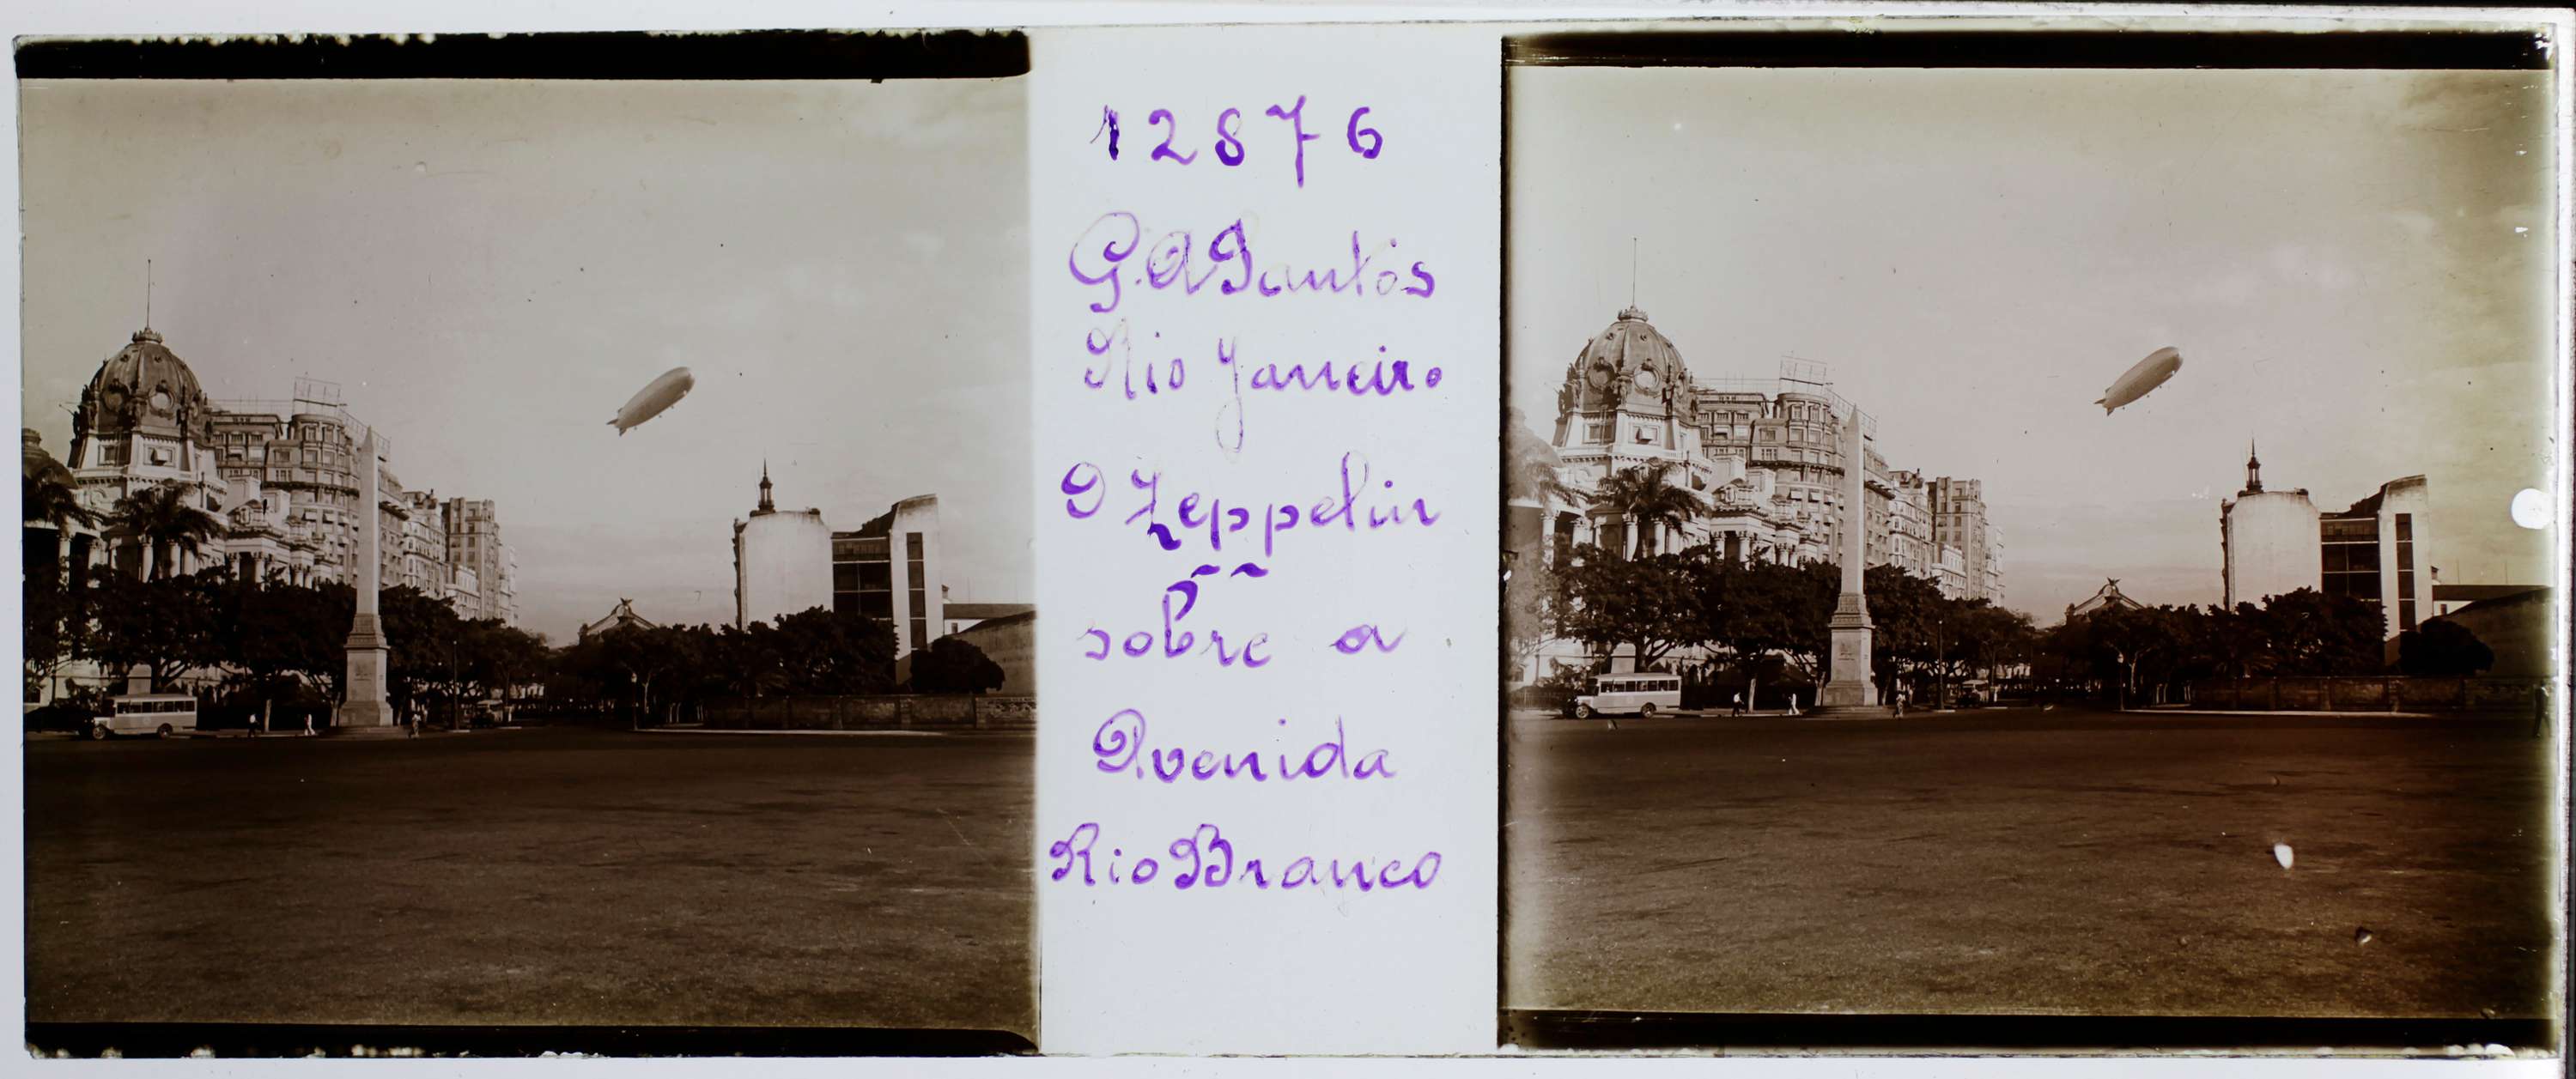 12876
G. A Santos
Rio Janeiro
O Zeppelin
sobre a
Avenida
Rio Branco